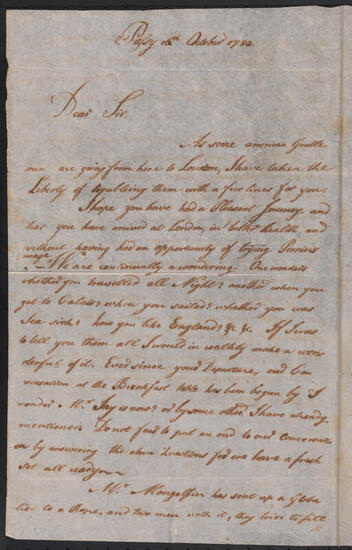 Passy 16th October 1783.
Dear Sir.
As some american Gentle
men are going from here to London, I have taken the
Liberty of troubling them with a few lines for you.
I hope you have had a Pleasant Journey, and
that you have arrived at London, in better health, and
without having had an opportunity of trying Perriers
mage
We are continually a wondering. One wonders
whether you travelled all Night? another when you
got to Calais? when you sailed? whether you was
Sea sick? how you like England? &. &c. If I was
to tell you them all I would in reallity make a won
derful of it. Ever since your Departure, our Con
versation at the Breakfast table has been begun by "I
wonder Mr. Jay is now? or by some other I have already
mentioned. Do not fear to put an end to our Conversation
on by answering the above Questions for we have a fresh
set all ready
Mr. Mongolfier has sent up a Globe
tied to a Rope, and two men with it, they tried to fill